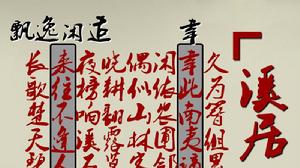 溪居
幸
飘逸闲适
久为簪组累
幸此南夷谪
闲依农圃邻
偶似山林客
晓耕翻露草
夜榜响溪石
来往不逢人
长歌楚天碧